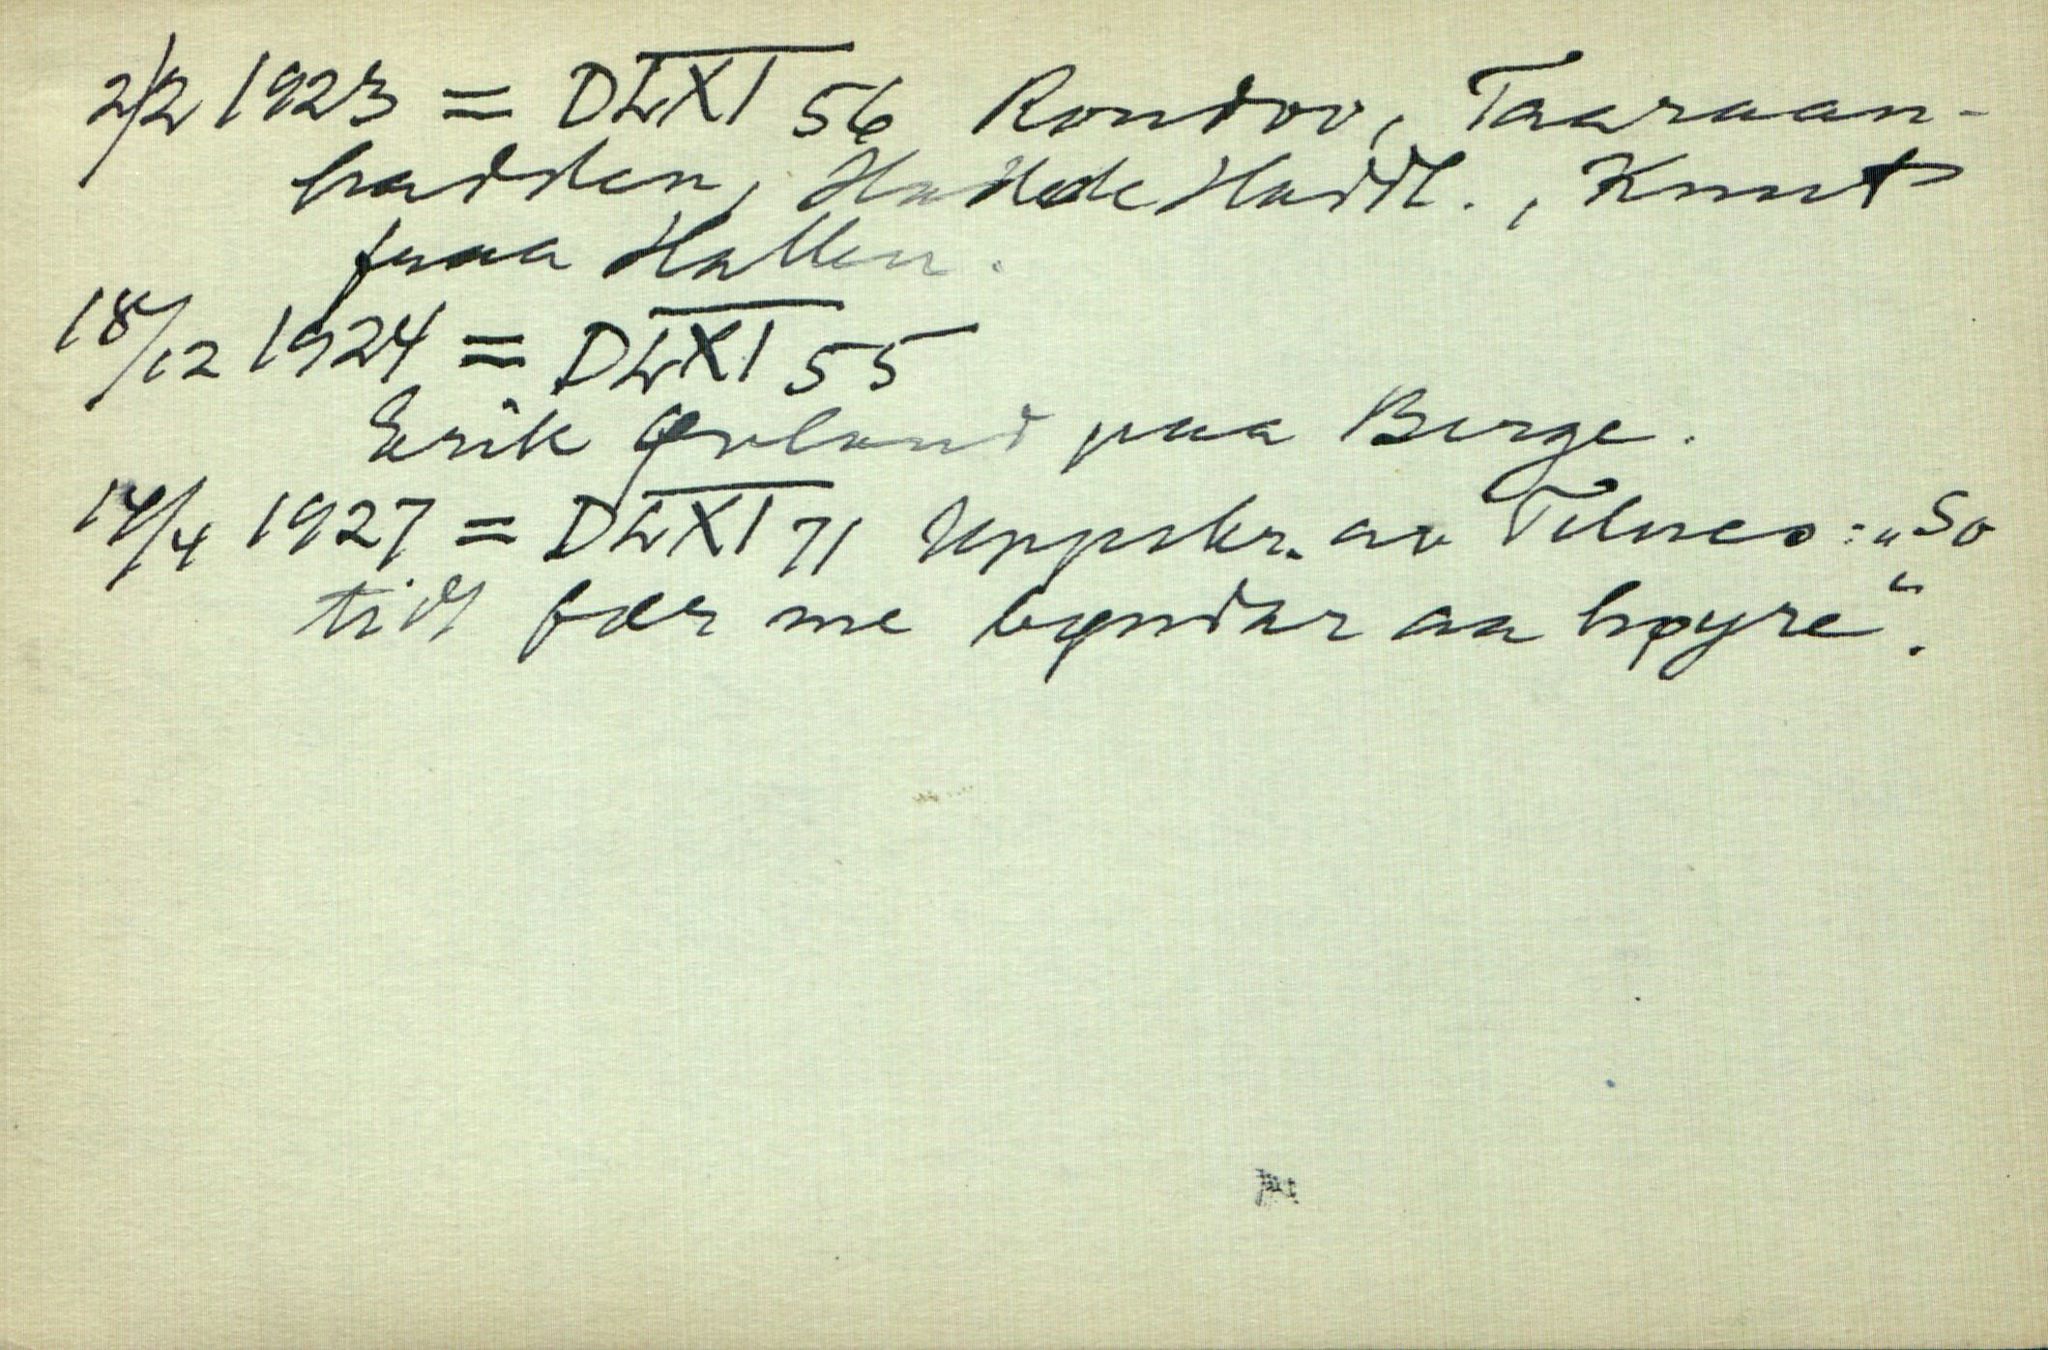 2/2 1923 = DLXI 56 Rondoo, Taaraan-
hadden, Hadde Haddl., Knut
fraa Hallen.
18/12 1924 = DLXI 55
Erik Qvland paa Berge.
14/4 1927 = DLXI 71 Uppskr. av Tilnes: „So
tidt fær me bøndar aa høyre“.